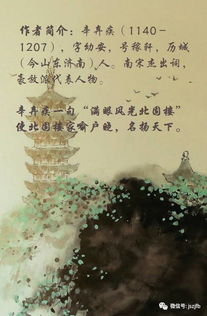 作者简介：辛弃疾（1140-
1207），字幼安，号稼轩，历城
（今山东济南）人。南宋杰出词，
豪放派代表人物。
辛弃疾一句“满眼风光北固楼”
使北固楼家喻户晓，名扬天下。
微信号: jszjfb